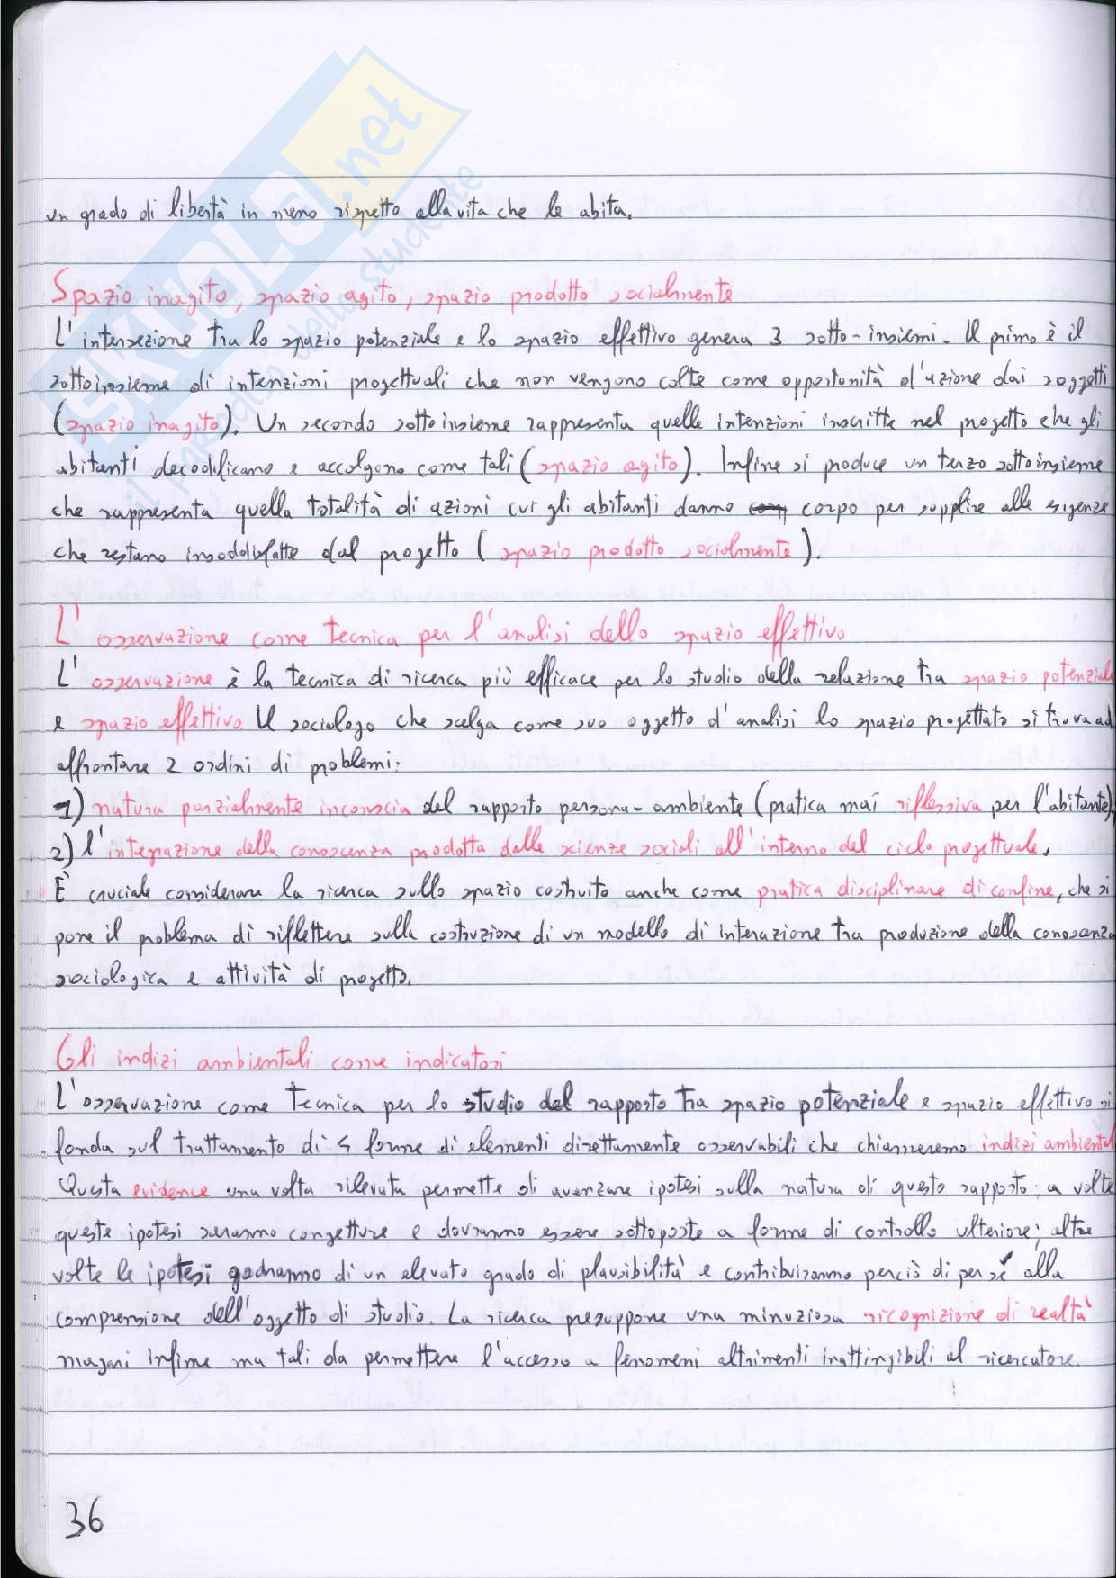 SKUOLA.net
il paradiso dello studente
un grado di libertà in meno rispetto alla vita che le abita.
Spazio inagito, spazio agito, spazio prodotto socialmente
L'intersezione tra lo spazio potenziale e lo spazio effettivo genera 3 sotto-insiemi. Il primo è il
sottoinsieme di intenzioni progettuali che non vengono colte come opportunità d'azione dai soggetti
(spazio inagito). Un secondo sottoinsieme rappresenta quelle intenzioni inscritte nel progetto che gli
abitanti decodificano e accolgono come tali (spazio agito). Infine si produce un terzo sottoinsieme
che rappresenta quella totalità di azioni cui gli abitanti danno corpo per supplire alle esigenze
che restano insoddisfatte dal progetto (spazio prodotto socialmente).
L'osservazione come tecnica per l'analisi dello spazio effettivo
L'osservazione è la tecnica di ricerca più efficace per lo studio della relazione tra spazio potenziale
e spazio effettivo Il sociologo che scelga come suo oggetto d'analisi lo spazio progettato si trova ad
affrontare 2 ordini di problemi:
1) natura parzialmente inconscia del rapporto persona-ambiente (pratica mai riflessiva per l'abitante),
2) l'integrazione della conoscenza prodotta dalle scienze sociali all'interno del ciclo progettuale.
È cruciale considerare la ricerca sullo spazio costruito anche come pratica disciplinare di confine, che si
pone il problema di riflettere sulla costruzione di un modello di interazione tra produzione della conoscenza
sociologica e attività di progetto.
Gli indizi ambientali come indicatori
L'osservazione come tecnica per lo studio del rapporto tra spazio potenziale e spazio effettivo si
fonda sul trattamento di 4 forme di elementi direttamente osservabili che chiameremo indizi ambientali
Questa evidence una volta rilevata permette di avanzare ipotesi sulla natura di questo rapporto: a volte
queste ipotesi saranno congetture e dovranno essere sottoposte a forme di controllo ulteriore; altre
volte le ipotesi godranno di un elevato grado di plausibilità e contribuiranno perciò di per sé alla
comprensione dell'oggetto di studio. La ricerca presuppone una minuziosa ricognizione di realtà
magari infime ma tali da permettere l'accesso a fenomeni altrimenti inattingibili al ricercatore.
36